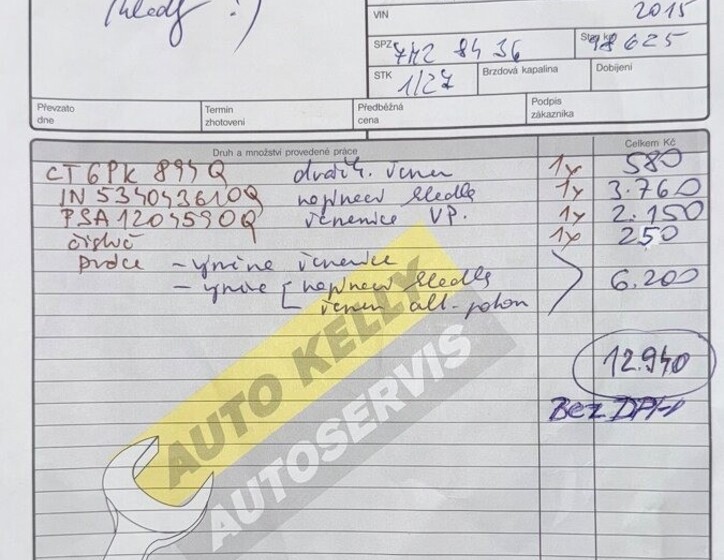 (kladky :)
VIN
2015
SPZ 7M2 8436 Stav km 98625
STK 1/27 Brzdová kapalina Dobíjení
Převzato dne Termín zhotovení Předběžná cena Podpis zákazníka
Druh a množství provedené práce Celkem Kč
CT 6PK 894Q drážk. řemen 1x 580
IN 534043610Q napínací kladka 1x 3.760
PSA 12045590Q řemenice VP. 1x 2.150
1x 250
práce - výměna řemenice
- napínací kladka 6.200
řemen
12.940
BEZ DPH
AUTO KELLY
AUTOSERVIS